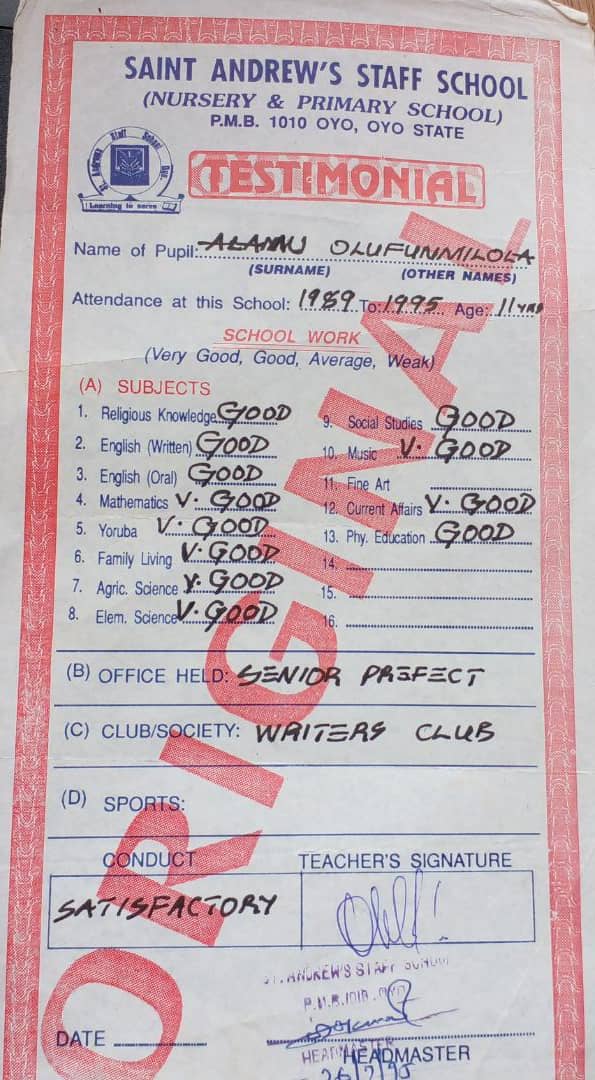 SAINT ANDREW'S STAFF SCHOOL
(NURSERY & PRIMARY SCHOOL)
P.M.B. 1010 OYO, OYO STATE
St. Andrews Staff School Oyo.
Learning to serve
TESTIMONIAL
ORIGINAL
Name of Pupil: OLUFUNMILOLA
(SURNAME) (OTHER NAMES)
Attendance at this School: 1989 To: 1995 Age: 11 YRS
SCHOOL WORK
(Very Good, Good, Average, Weak)
(A) SUBJECTS
1. Religious Knowledge GOOD
2. English (Written) GOOD
3. English (Oral) GOOD
4. Mathematics V. GOOD
5. Yoruba V. GOOD
6. Family Living V. GOOD
7. Agric. Science V. GOOD
8. Elem. Science V. GOOD
9. Social Studies GOOD
10. Music V. GOOD
11. Fine Art
12. Current Affairs V. GOOD
13. Phy. Education GOOD
14.
15.
16.
(B) OFFICE HELD: SENIOR PREFECT
(C) CLUB/SOCIETY: WRITERS CLUB
(D) SPORTS:
CONDUCT TEACHER'S SIGNATURE
SATISFACTORY
ST. ANDREW'S STAFF SCHOOL
P.M.B. 1010, OYO
DATE
HEADMASTER
HEADMASTER